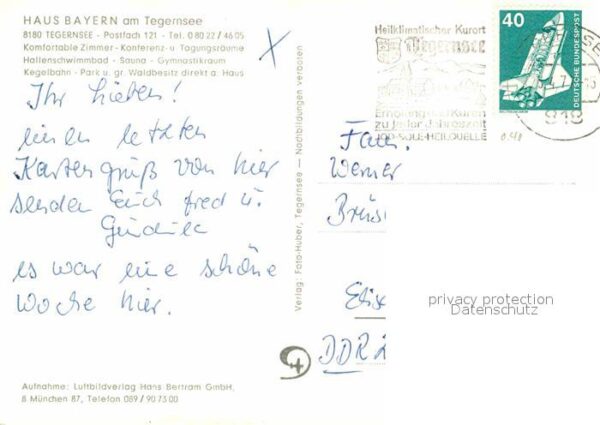 HAUS BAYERN am Tegernsee
8180 TEGERNSEE - Postfach 121 - Tel. 0 80 22 / 46 05
Komfortable Zimmer - Konferenz- u. Tagungsräume
Hallenschwimmbad - Sauna - Gymnastikraum
Kegelbahn - Park u. gr. Waldbesitz direkt a. Haus
Ihr Lieben!
einen letzten
Kartengruß von hier
senden Euch Fred u.
es war eine schöne
Woche hier.
Aufnahme: Luftbildverlag Hans Bertram GmbH,
8 München 87, Telefon 089 / 90 73 00
Verlag: Foto-Huber, Tegernsee — Nachbildungen verboten
Heilklimatischer Kurort
Tegernsee
Erholung und Kuren
zu jeder Jahreszeit
JOD-SOLE-HEILQUELLE
40
DEUTSCHE BUNDESPOST
Fam.
Werner
DDR
privacy protection
Datenschutz